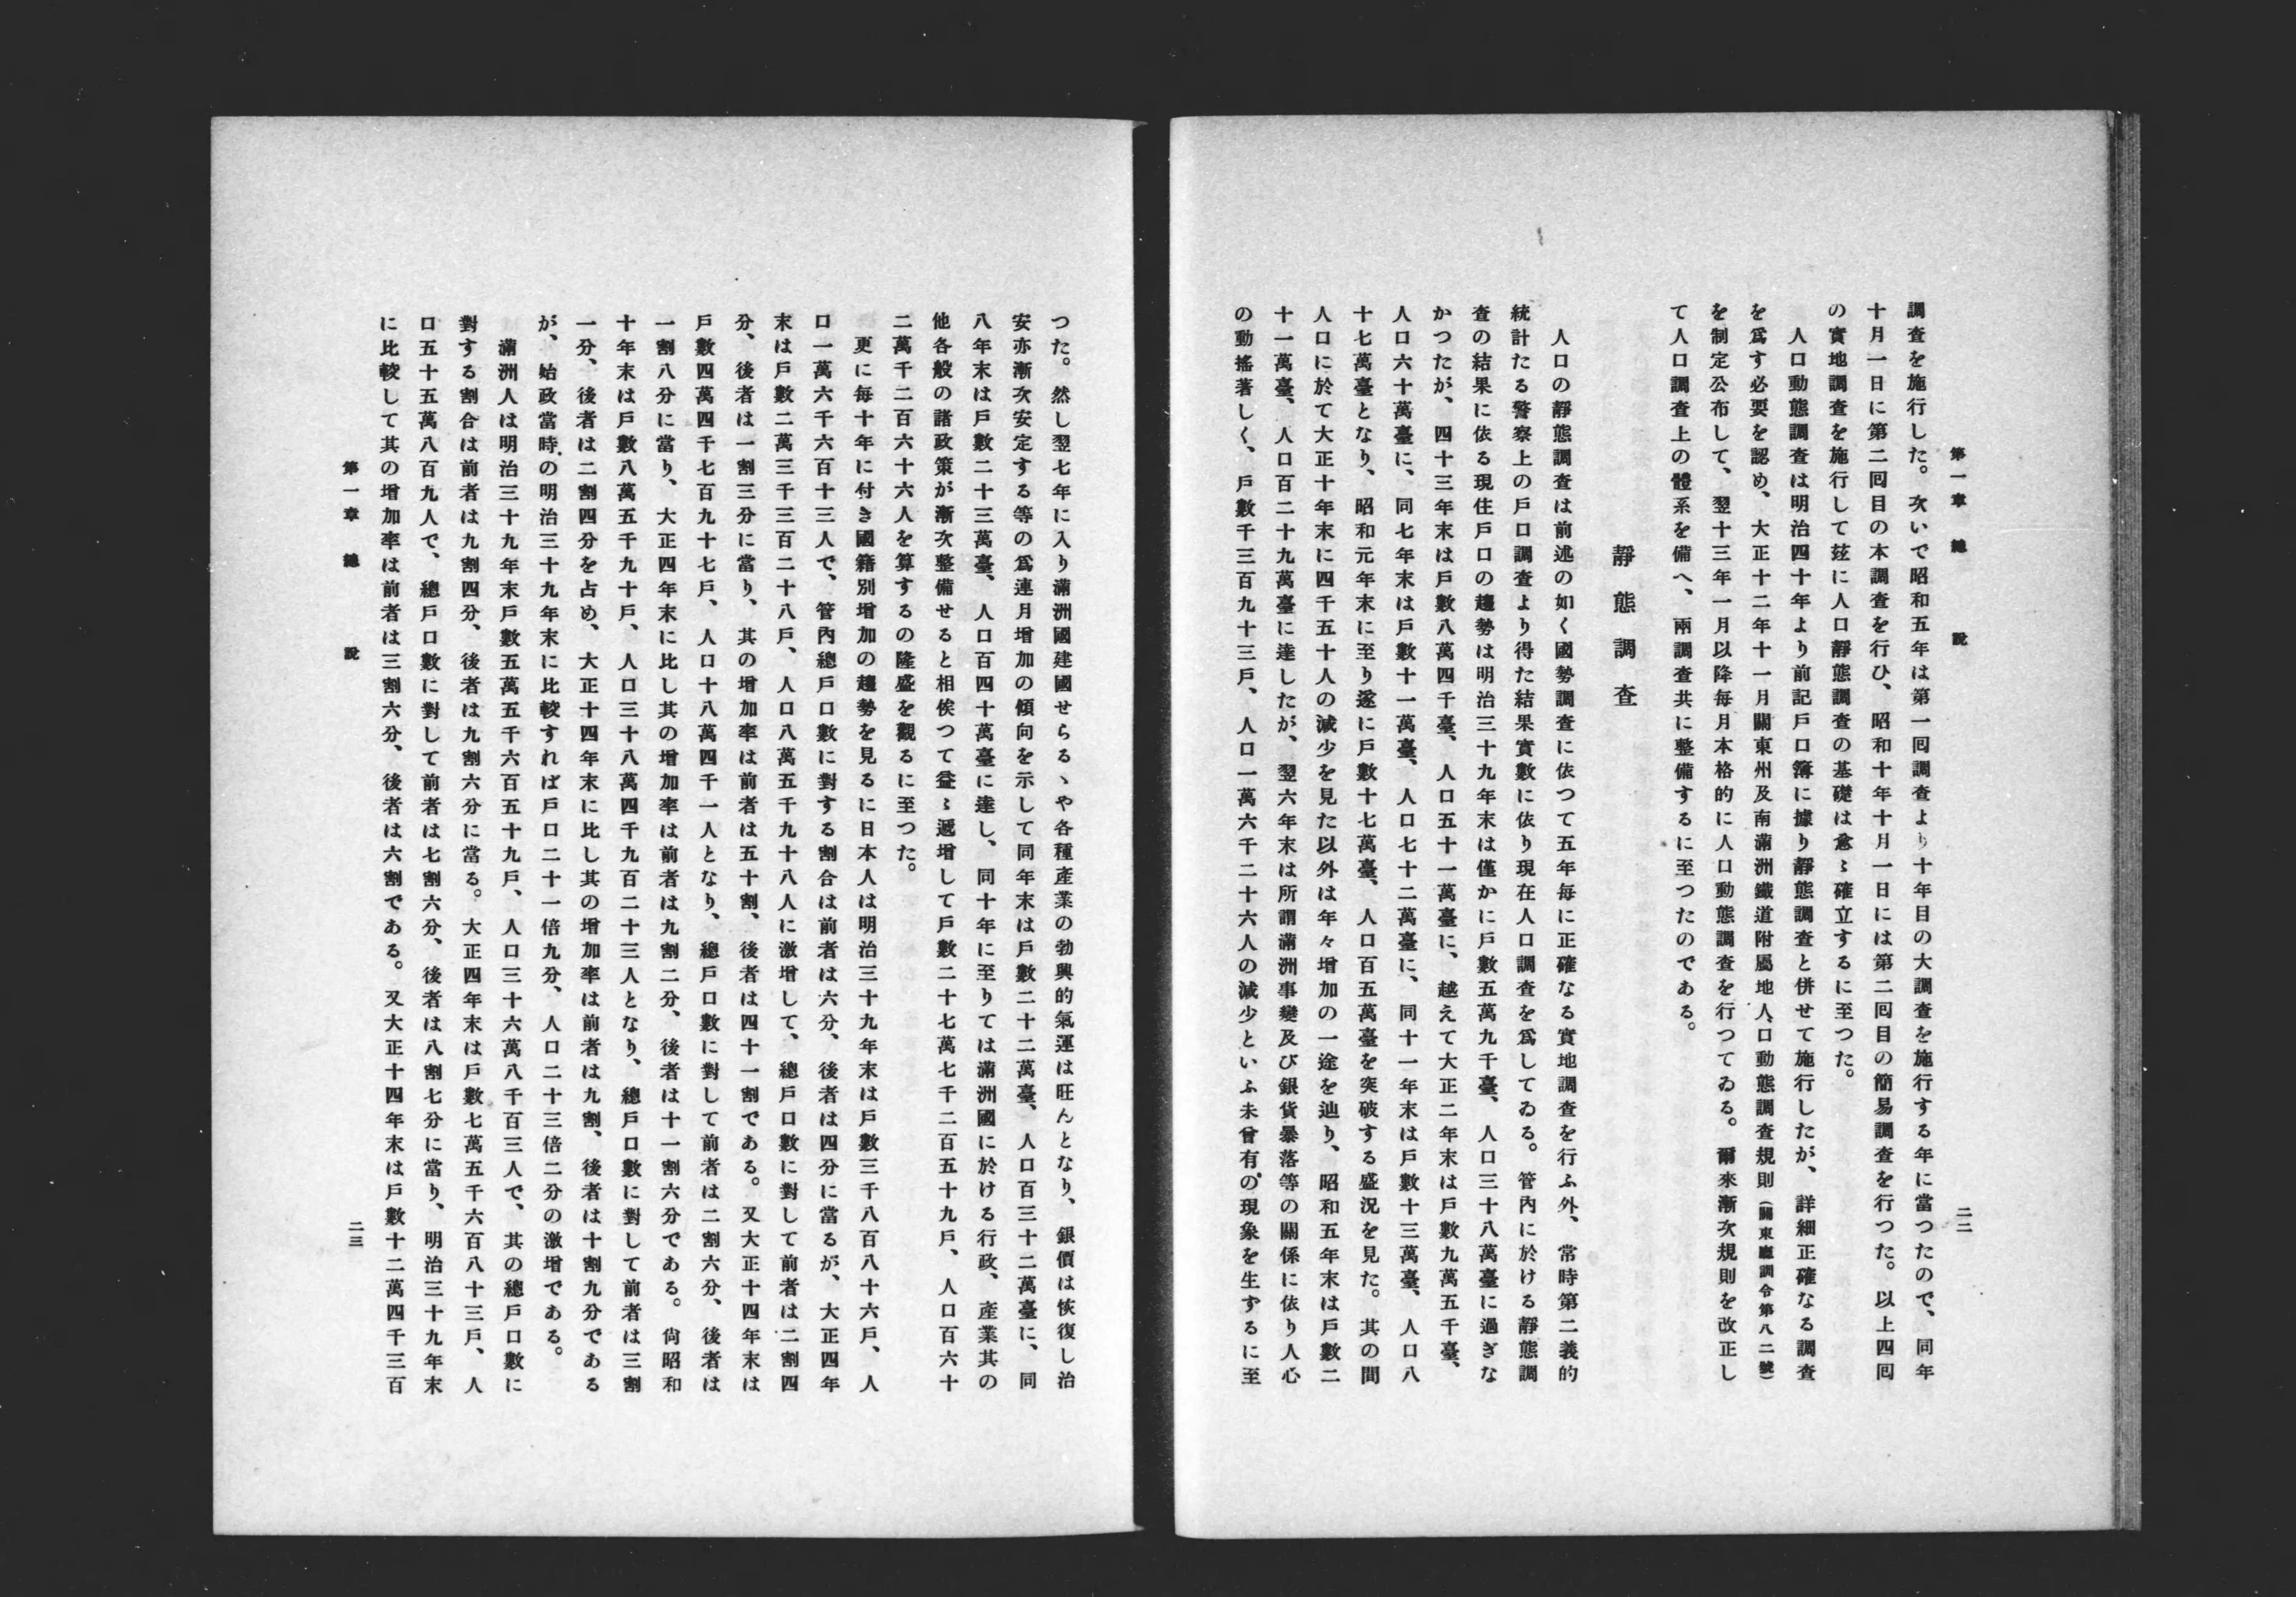 第一章 總說
二二
調查を施行した。次いで昭和五年は第一囘調查より十年目の大調查を施行する年に當つたので、同年
十月一日に第二囘目の本調查を行ひ、昭和十年十月一日には第二囘目の簡易調查を行つた。以上四囘
の實地調查を施行して玆に人口靜態調查の基礎は愈〻確立するに至つた。
人口動態調查は明治四十年より前記戶口簿に據り靜態調查と併せて施行したが、詳細正確なる調查
を爲す必要を認め、大正十二年十一月關東州及南滿洲鐵道附屬地人口動態調查規則(關東廳訓令第八二號)
を制定公布して、翌十三年一月以降每月本格的に人口動態調查を行つてゐる。爾來漸次規則を改正し
て人口調查上の體系を備へ、兩調查共に整備するに至つたのである。
靜態調查
人口の靜態調查は前述の如く國勢調查に依つて五年每に正確なる實地調查を行ふ外、常時第二義的
統計たる警察上の戶口調查より得た結果實數に依り現在人口調查を爲してゐる。管內に於ける靜態調
查の結果に依る現住戶口の趨勢は明治三十九年末は僅かに戶數五萬九千臺、人口三十八萬臺に過ぎな
かつたが、四十三年末は戶數八萬四千臺、人口五十一萬臺に、越えて大正二年末は戶數九萬五千臺、
人口六十萬臺に、同七年末は戶數十一萬臺、人口七十二萬臺に、同十一年末は戶數十三萬臺、人口八
十七萬臺となり、昭和元年末に至り遂に戶數十七萬臺、人口百五萬臺を突破する盛況を見た。其の間
人口に於て大正十年末に四千五十人の減少を見た以外は年々增加の一途を辿り、昭和五年末は戶數二
十一萬臺、人口百二十九萬臺に達したが、翌六年末は所謂滿洲事變及び銀貨暴落等の關係に依り人心
の動搖著しく、戶數千三百九十三戶、人口一萬六千二十六人の減少といふ未曾有の現象を生ずるに至
つた。然し翌七年に入り滿洲國建國せらるゝや各種產業の勃興的氣運は旺んとなり、銀價は恢復し治
安亦漸次安定する等の爲連月增加の傾向を示して同年末は戶數二十二萬臺、人口百三十二萬臺に、同
八年末は戶數二十三萬臺、人口百四十萬臺に達し、同十年に至りては滿洲國に於ける行政、產業其の
他各般の諸政策が漸次整備せると相俟つて益〻遞增して戶數二十七萬七千二百五十九戶、人口百六十
二萬千二百六十六人を算するの隆盛を觀るに至つた。
更に每十年に付き國籍別增加の趨勢を見るに日本人は明治三十九年末は戶數三千八百八十六戶、人
口一萬六千六百十三人で、管內總戶口數に對する割合は前者は六分、後者は四分に當るが、大正四年
末は戶數二萬三千三百二十八戶、人口八萬五千九十八人に激增して、總戶口數に對して前者は二割四
分、後者は一割三分に當り、其の增加率は前者は五十割、後者は四十一割である。又大正十四年末は
戶數四萬四千七百九十七戶、人口十八萬四千一人となり、總戶口數に對して前者は二割六分、後者は
一割八分に當り、大正四年末に比し其の增加率は前者は九割二分、後者は十一割六分である。尙昭和
十年末は戶數八萬五千九十戶、人口三十八萬四千九百二十三人となり、總戶口數に對して前者は三割
一分、後者は二割四分を占め、大正十四年末に比し其の增加率は前者は九割、後者は十割九分である
が、始政當時の明治三十九年末に比較すれば戶口二十一倍九分、人口二十三倍二分の激增である。
滿洲人は明治三十九年末戶數五萬五千六百五十九戶、人口三十六萬八千百三人で、其の總戶口數に
對する割合は前者は九割四分、後者は九割六分に當る。大正四年末は戶數七萬五千六百八十三戶、人
口五十五萬八百九人で、總戶口數に對して前者は七割六分、後者は八割七分に當り、明治三十九年末
に比較して其の增加率は前者は三割六分、後者は六割である。又大正十四年末は戶數十二萬四千三百
第一章 總說
二三